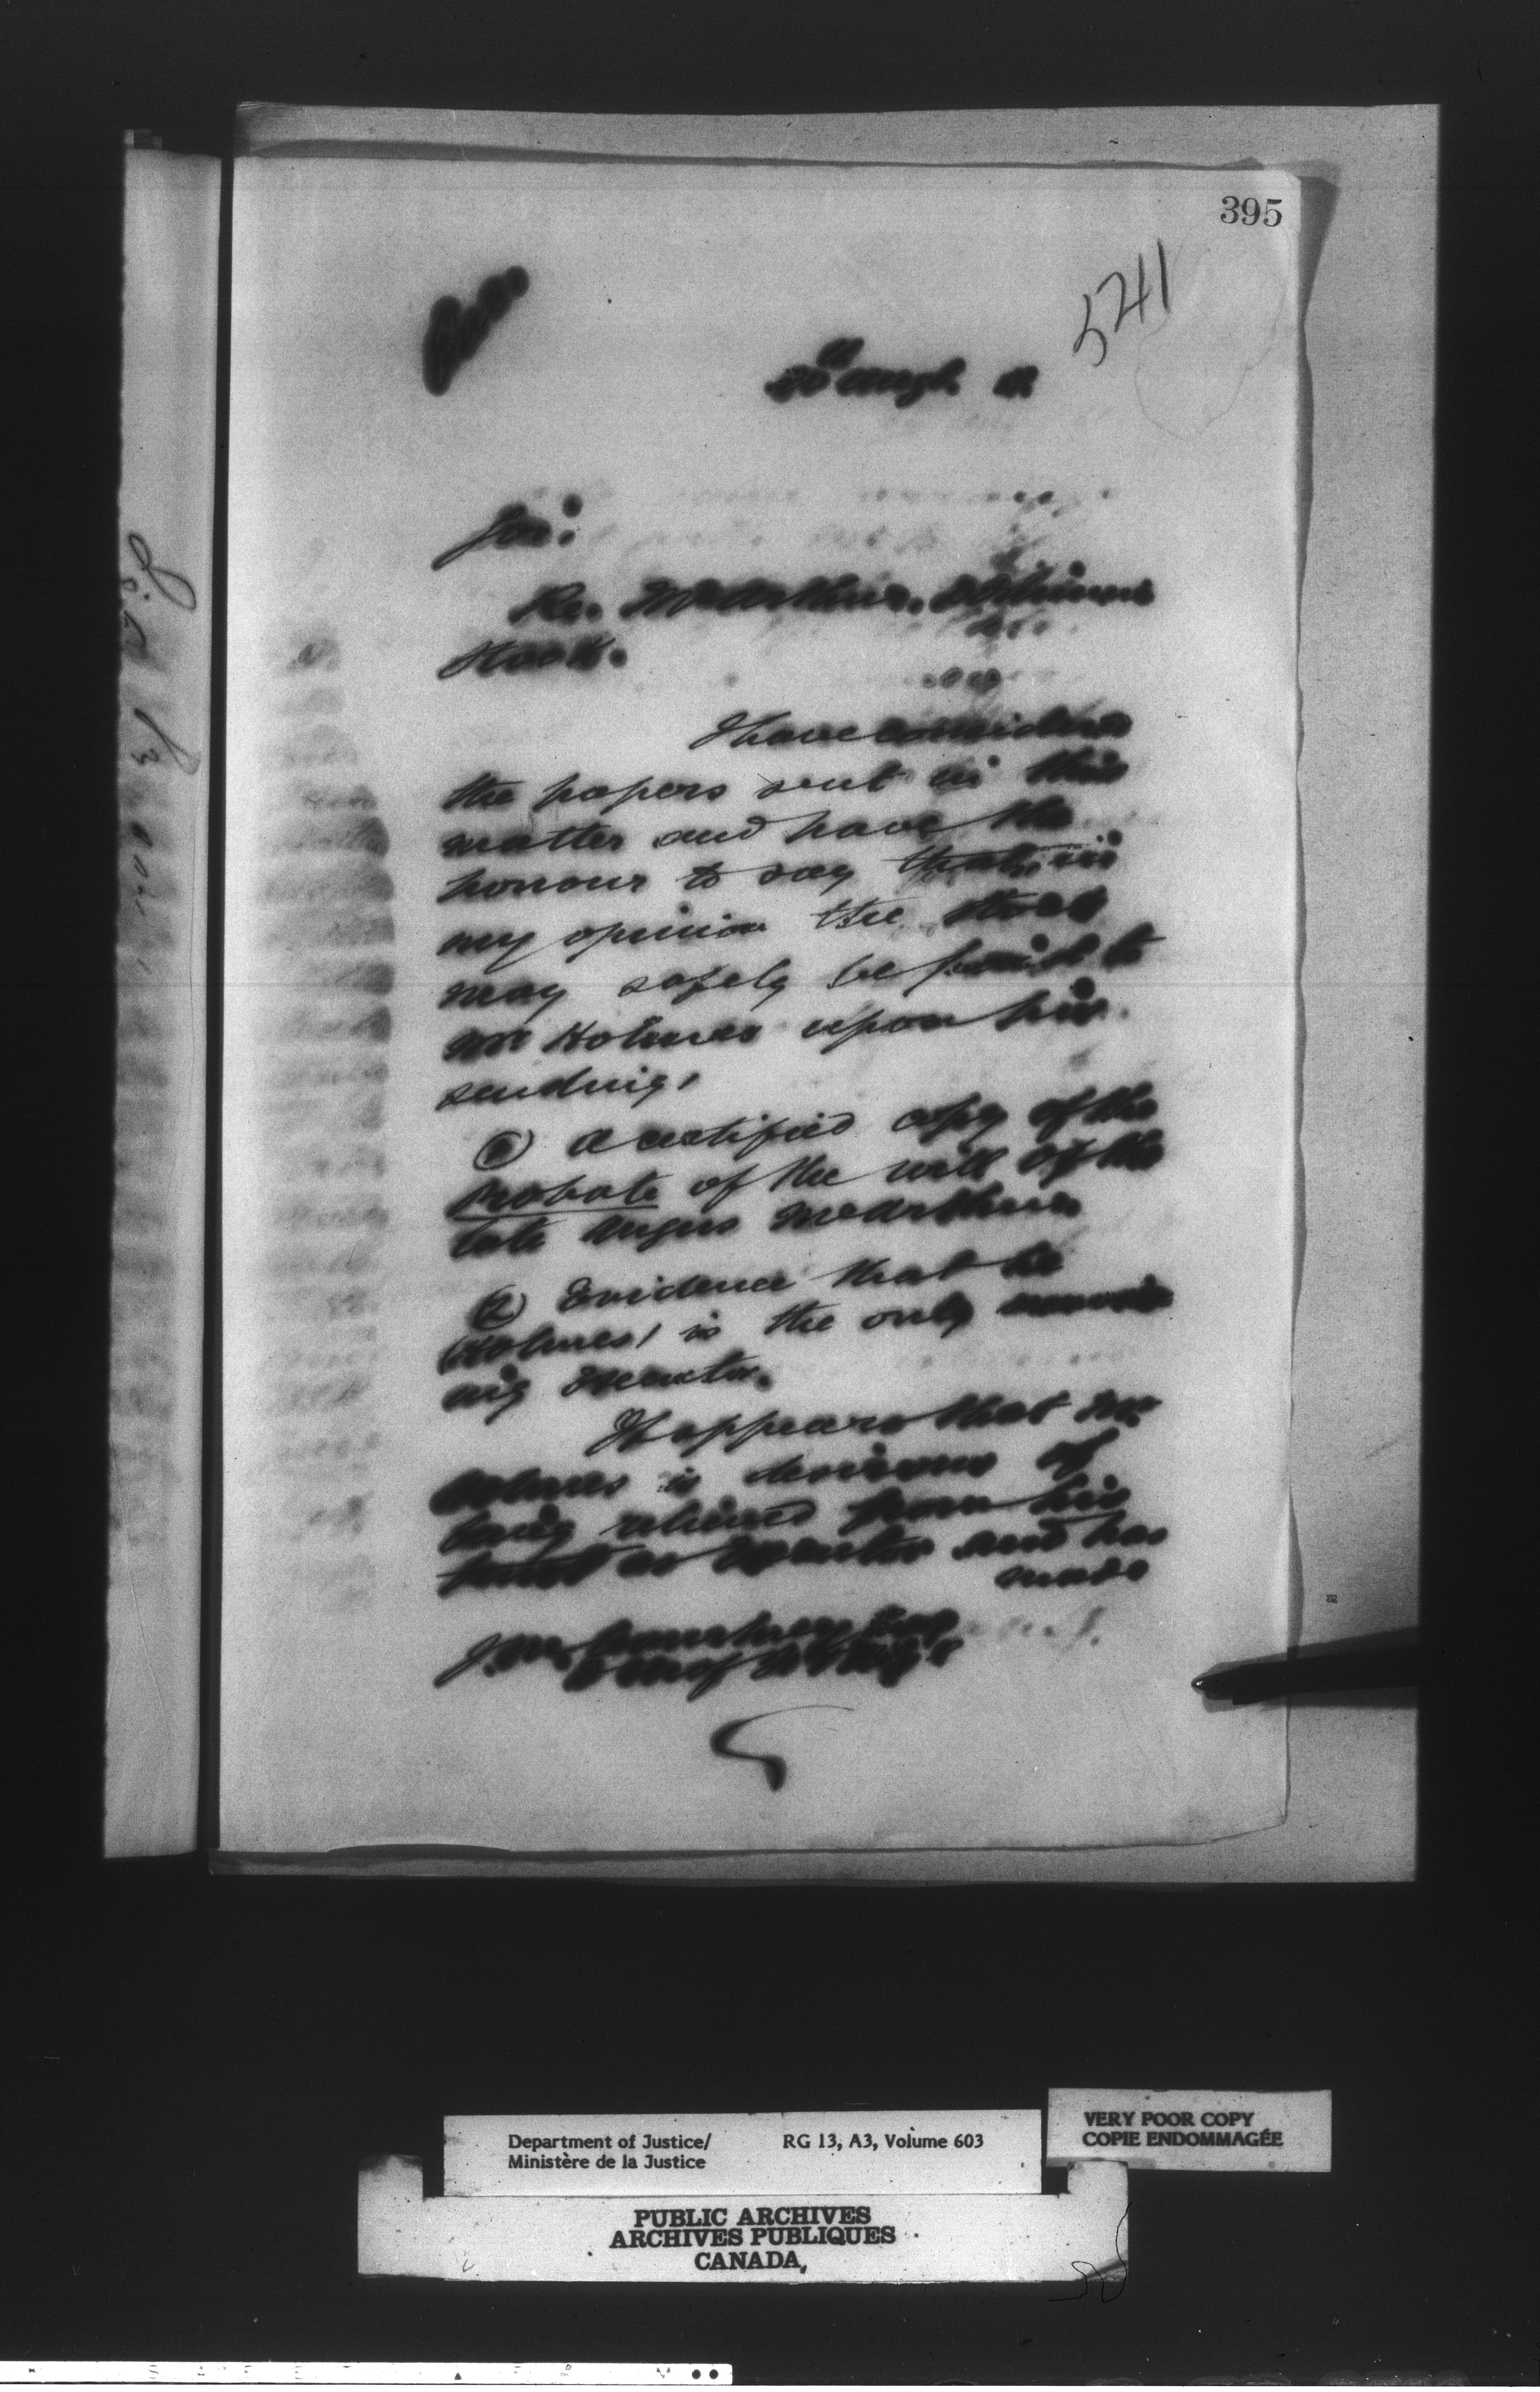 395
5241
20 Augt.
Sir:
Re. McArthur.
Stock.
I have considered
the papers sent in this
matter and have the
honour to say that, in
my opinion the stock
may safely be paid to
Mr Holmes upon his
sending,
① a certified copy of the
probate of the will of the
late Angus McArthur
② Evidence that he
(Holmes) is the only
ing Executor.
It appears that Mr
Holmes is desirous of
being relieved from his
trust as Executor and has
made
J. M. Courtney Esq
Department of Justice/ RG 13, A3, Volume 603
Ministère de la Justice
VERY POOR COPY
COPIE ENDOMMAGÉE
PUBLIC ARCHIVES
ARCHIVES PUBLIQUES
CANADA